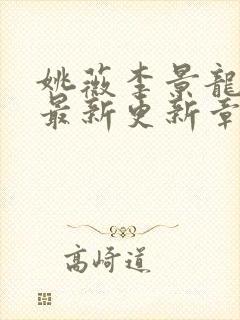 姚薇李景龍
最新更新章
高崎道